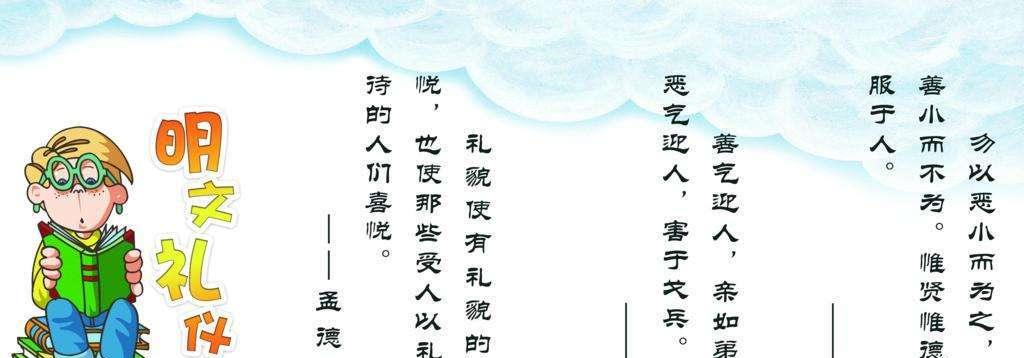 勿以恶小而为之,
善小而不为。惟贤惟德
服于人。
—
善气迎人,亲如弟
恶气迎人,害于戈兵。
—
礼貌使有礼貌的
悦,也使那些受人以礼
待的人们喜悦。
——孟德
明文礼仪